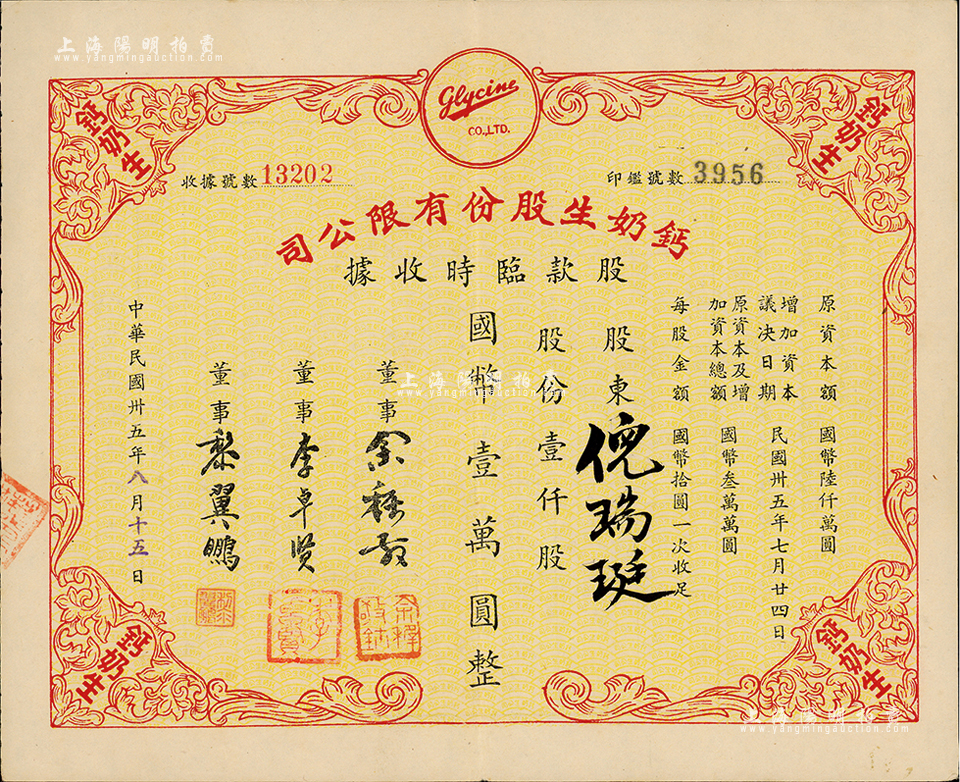 上海陽明拍賣
www.yangmingauction.com
Glycine
CO.,LTD.
鈣奶生
鈣奶生
收據號數 13202
印鑑號數 3956
鈣奶生股份有限公司
股款臨時收據
原資本額 國幣陸仟萬圓
增加資本議決日期 民國卅五年七月廿四日
原資本及增加資本總額 國幣叁萬萬圓
每股金額 國幣拾圓一次收足
股東 倪瑞珽
股份壹仟股
國幣壹萬圓整
董事 余
董事 李卓贤
董事 黎翼鵬
中華民國卅五年八月十五日
上海陽明拍賣
www.yangmingauction.com
鈣奶生
鈣奶生
上海陽明拍賣
www.yangmingauction.com